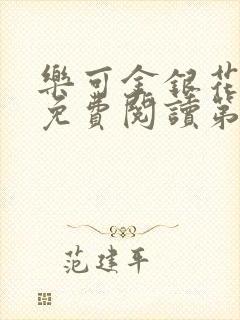 樂可金銀花
免費閱讀第
范建平